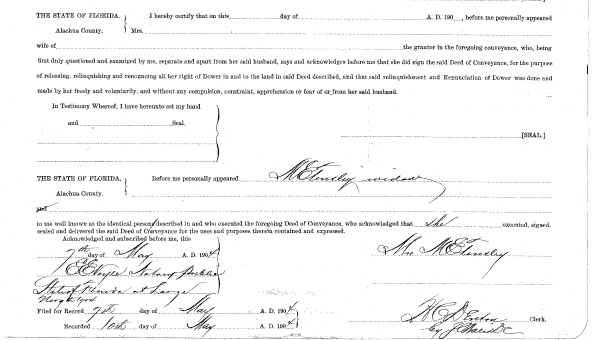 THE STATE OF FLORIDA, I hereby certify that on this day of A. D. 190 , before me personally appeared
Alachua County. Mrs.
wife of the grantor in the foregoing conveyance, who, being
first duly questioned and examined by me, separate and apart from her said husband, says and acknowledges before me that she did sign the said Deed of Conveyance, for the purpose
of releasing, relinquishing and renouncing all her right of Dower in and to the land in said Deed described, and that said relinquishment and Renunciation of Dower was done and
made by her freely and voluntarily, and without any compulsion, constraint, apprehension or fear of or from her said husband.
In Testimony Whereof, I have hereunto set my hand
and Seal.
[SEAL.]
THE STATE OF FLORIDA, Before me personally appeared widow
Alachua County.
and
to me well known as the identical person described in and who executed the foregoing Deed of Conveyance, who acknowledged that she executed, signed,
sealed and delivered the said Deed of Conveyance for the uses and purposes therein contained and expressed.
Acknowledged and subscribed before me, this
7th day of May A. D. 1904
Notary Public
State of Florida at Large
Filed for Record 7th day of May A. D. 1904
Recorded 10th day of May A. D. 1904
Clerk.
by